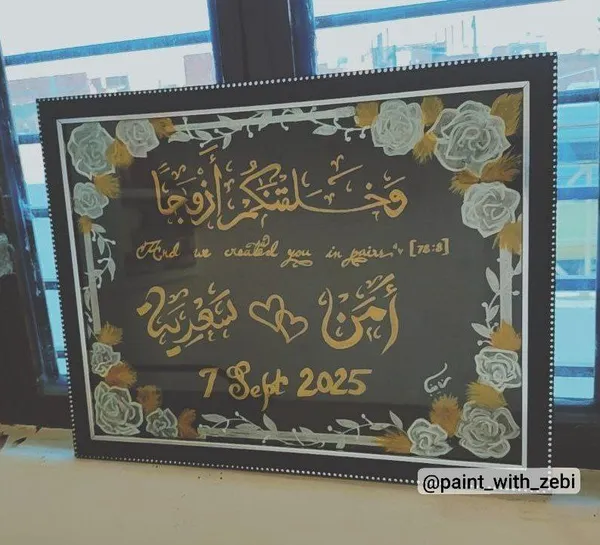 وَخَلَقْنَكُمْ أَزْوَجًا
And we created you in pairs." [78:8]
أَمَن سَعْدِيَة
7 Sept 2025
@paint_with_zebi